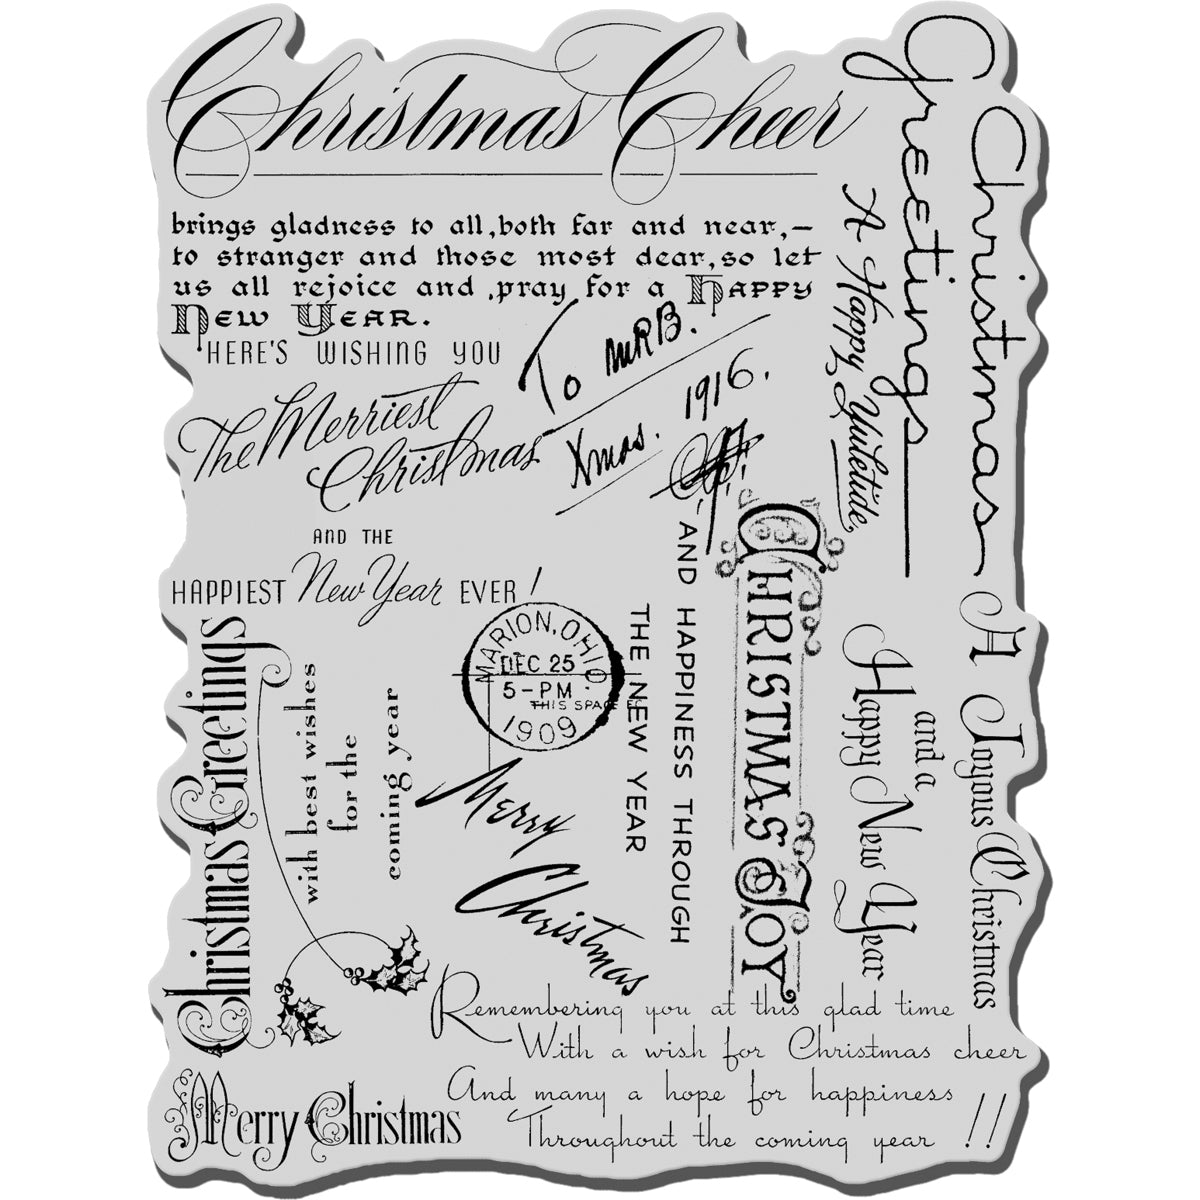 Christmas Cheer
brings gladness to all, both far and near,—
to stranger and those most dear, so let
us all rejoice and pray for a Happy
New Year.
HERE'S WISHING YOU
The Merriest
Christmas
AND THE
HAPPIEST New Year EVER!
To MRB.
Xmas. 1916.
Christmas
Greetings
A Happy Yuletide,
Christmas Joy
AND HAPPINESS THROUGH
THE NEW YEAR
A Joyous Christmas
and a
Happy New Year
MARION, OHIO
DEC 25
5-PM
THIS SPACE
1909
Christmas Greetings
with best wishes
for the
coming year
Merry
Christmas
Remembering you at this glad time
With a wish for Christmas cheer
And many a hope for happiness
Throughout the coming year !!
Merry Christmas